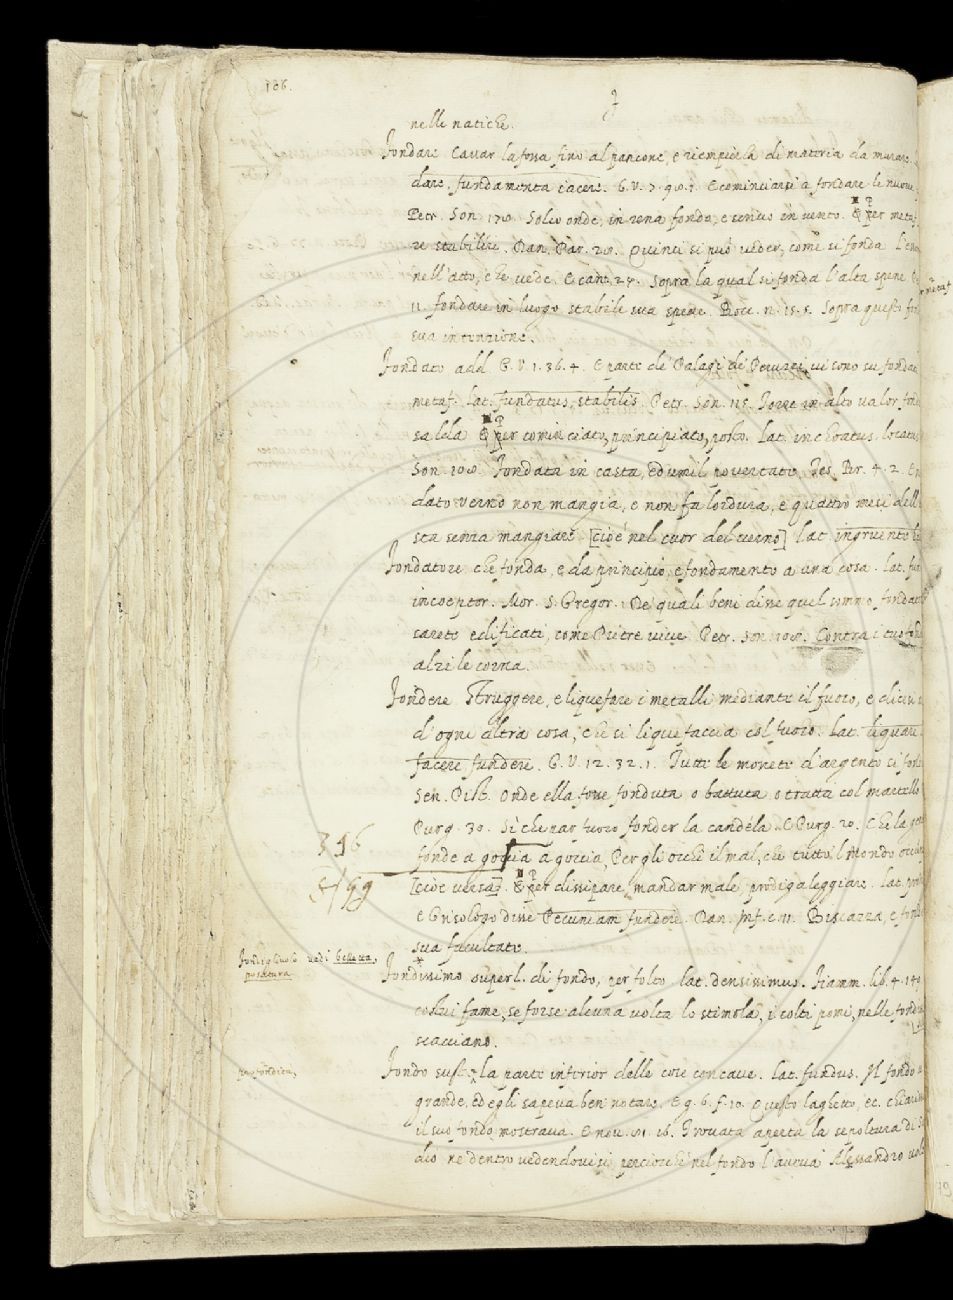 186.
F
nelle natiche.
Fondare Cavar la fossa fino al pancone, e riempierla di materia da murare.
dare, fundamenta iacere. G.V. 7. 98. 1. E cominciarsi a fondare le nuove
Petr. Son. 178. Solco onde, in rena fondo, e scrivo in vento. ¶ E per metaf.
re stabilire. Dan. Par. 28. Quinci si può veder, come si fonda L'es
nell'atto, che vede. E cant. 24. Sopra la qual si fonda l'alta spene
11. fondare in luogo stabile sua spene. Bocc. n. 15. 5. Sopra questi
sua intenzione.
Fondato add. G.V. 1. 36. 4. E parte de' Palagi de' Peruzzi vi sono su fondati
metaf. lat. fundatus, stabilis. Petr. Son. 115. Torre in alto valor
salda ¶ E per cominciato, principiato, posto. Lat. inchoatus. locatus
Son. 108. Fondata in casta, ed umil povertate, Tes. Br. 4. 2.
dato verno non mangia, e non fa lordura, e quattro mesi dell
sta senza mangiare [cioè nel cuor del verno] lat. ingruente
Fondatore che fonda, e dà principio, e fondamento a una cosa. lat.
inceptor. Mor. S. Gregor. De' quali bene disse quel sommo fondat
carete edificati, come Pietre vive. Petr. son. 108. Contra i tuo
alzi le corna.
Fondere Struggere, e liquefare i metalli mediante il fuoco, e dicesi
d'ogni altra cosa, che si liquefaccia col fuoco. Lat. liquare
facere fundere. G.V. 12. 32. 1. Tutte le monete d'argento si
Sen. Pist. Onde ella fosse fonduta o battuta o tratta col martello
Purg. 30. Sì che par fuoco fonder la candela. E Purg. 20. Che la
396
fonde a goccia a goccia, Per gli occhi il mal, che tutto 'l Mondo
[cioè versa] ¶ E per dissipare, mandar male, prodigaleggiare. lat.
e Grisologo disse Pecuniam fundere. Dan. Inf. c. 11. Biscazza, e
sua facultate.
vedi belletta,
posatura
Fondissimo superl. di fondo, per folto lat. densissimus. Fiamm. lib. 4. 140
costui fame, se forse alcuna volta lo stimola, i colti pomi, nelle
scacciano.
Fondo sust. la parte inferior delle cose concave. lat. fundus. Il fondo
grande, ed egli sapeva ben notare. E g. 6. f. 10. Questo laghetto, ec. chiarissimo
il suo fondo mostrava. E nov. 81. 16. Trovata aperta la sepoltura di
dio ne dentro vedendovisi, perciocchè nel fondo l'aveva Alessandro